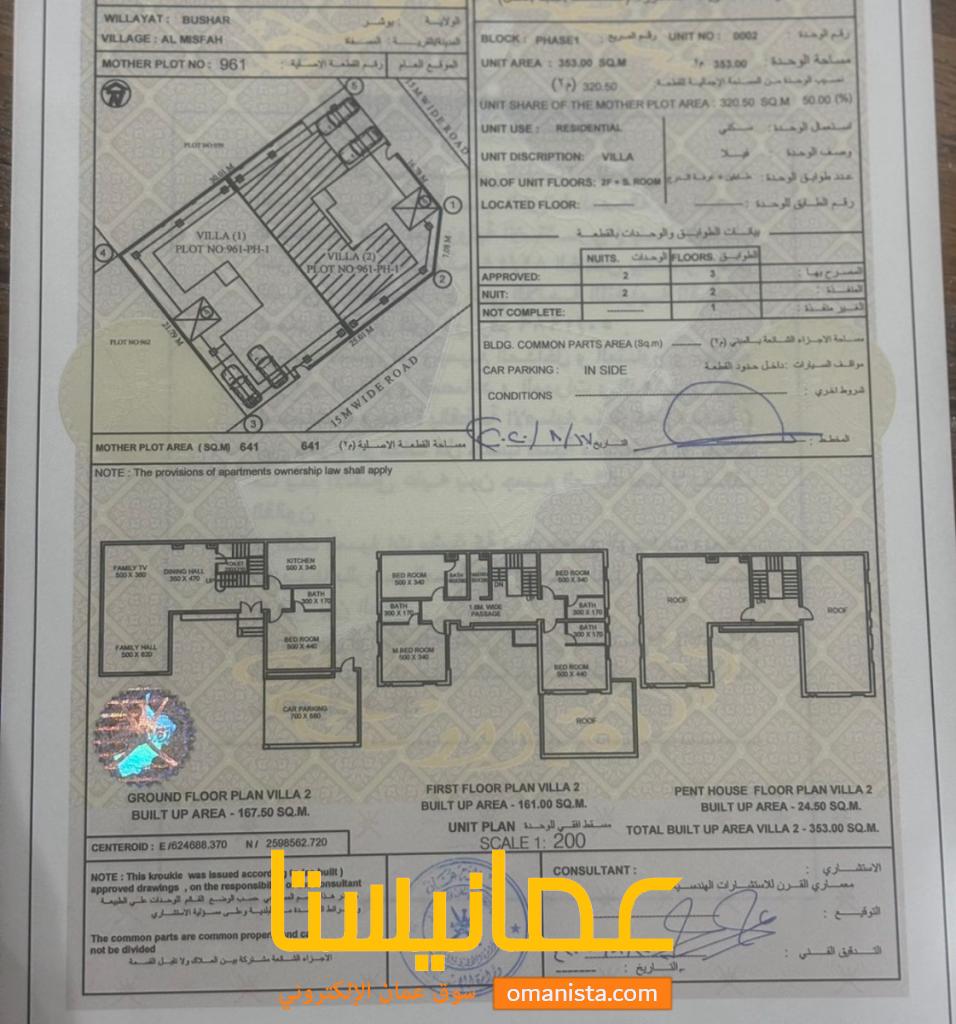 WILLAYAT : BUSHAR الولاية : بوشر
VILLAGE : AL MISFAH
MOTHER PLOT NO : 961 رقم القطعة الاصلية : الموقع العام
PLOT NO 959
15 M WIDE ROAD
VILLA (1)
PLOT NO:961-PH-1
VILLA (2)
PLOT NO:961-PH-1
5
1
2
3
4
7.08 M
25.61 M
21.09 M
PLOT NO 962
15 M WIDE ROAD
MOTHER PLOT AREA ( SQ.M) 641 641 مساحة القطعة الاصلية (م٢)
BLOCK : PHASE1 رقم المربع : UNIT NO : 0002 رقم الوحدة :
UNIT AREA : 353.00 SQ.M م٢ 353.00 مساحة الوحدة :
320.50 (م٢)
UNIT SHARE OF THE MOTHER PLOT AREA : 320.50 SQ.M 50.00 (%)
UNIT USE : RESIDENTIAL سكني استعمال الوحدة :
UNIT DISCRIPTION: VILLA فيلا وصف الوحدة :
NO.OF UNIT FLOORS: 2F + S. ROOM عدد طوابق الوحدة :
LOCATED FLOOR: رقم الطابق للوحدة :
بيانات الطوابق والوحدات بالقطعة
NUITS. الوحدات FLOORS. الطوابق
APPROVED: 2 3 المصرح بها :
NUIT: 2 2 المنفذة :
NOT COMPLETE: 1 الغير منفذة :
BLDG. COMMON PARTS AREA (Sq.m) مساحة الاجزاء الشائعة بالمبنى (م٢)
CAR PARKING : IN SIDE مواقف السيارات : داخل حدود القطعة
CONDITIONS شروط اخرى :
التاريخ المخطط :
NOTE : The provisions of apartments ownership law shall apply
FAMILY TV
500 X 360
DINING HALL
360 X 470
TOILET
UP
KITCHEN
500 X 340
BATH
300 X 170
BED ROOM
500 X 440
FAMILY HALL
500 X 620
CAR PARKING
700 X 680
BED ROOM
500 X 340
DN
UP
BED ROOM
500 X 340
BATH
300 X 170
1.8M. WIDE
PASSAGE
BATH
300 X 170
BATH
300 X 170
M.BED ROOM
500 X 340
BED ROOM
500 X 440
ROOF
ROOF
DN
ROOF
GROUND FLOOR PLAN VILLA 2
BUILT UP AREA - 167.50 SQ.M.
FIRST FLOOR PLAN VILLA 2
BUILT UP AREA - 161.00 SQ.M.
PENT HOUSE FLOOR PLAN VILLA 2
BUILT UP AREA - 24.50 SQ.M.
UNIT PLAN مسقط افقي للوحدة
SCALE 1: 200
TOTAL BUILT UP AREA VILLA 2 - 353.00 SQ.M.
CENTEROID : E /624688.370 N / 2598562.720
NOTE : This kroukie was issued accord built )
approved drawings , on the responsibi consultant
The common parts are common prope and ca
not be divided
الاجزاء الشائعة مشتركة بين الملاك ولا تقبل القسمة
CONSULTANT : الاستشاري :
التوقيع :
التدقيق الفني :
التاريخ :
عمانيستا
سوق عمان الإلكتروني
omanista.com